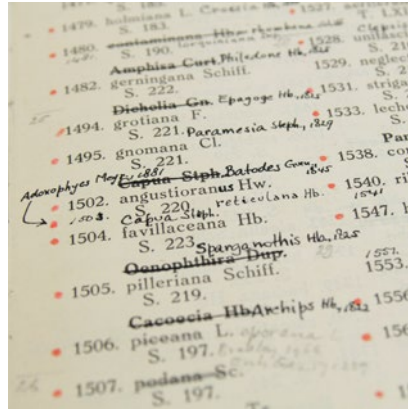 1479. holmiana L.
S. 183.
1480.
S. 190.
Amphisa Curt. Philedone Hb, 1825
1482. gerningana Schiff.
S. 222.
Dichelia Gn. Epagoge Hb, 1825
1494. grotiana F.
S. 221. Paramesia Steph, 1829
1495. gnomana Cl.
S. 221.
Adoxophyes Meyr, 1881
Capua Stph. Batodes Guen, 1845
1502. angustioranus Hw.
S. 220. reticulana Hb.
1503. Capua Steph.
1504. favillaceana Hb.
S. 223. Sparganothis Hb, 1825
Oenophthira Dup.
1505. pilleriana Schiff.
S. 219.
Cacoecia Hb Archips Hb, 1822
1506. piceana L. oporana L
S. 197.
1507. podana Sc.
S. 197.
1527.
T. LXI
1528.
S. 21
1529. neglec
S. 2
1531. striga
S.
1533. lech
S.
Pa
1538. co
S
1540. ri
1541
1547. h
1551.
1553.
1556
156